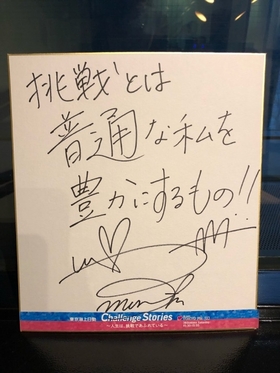 挑戦とは
普通な私を
豊かにするもの!!
東京海上日動 Challenge Stories
～人生は、挑戦であふれている～